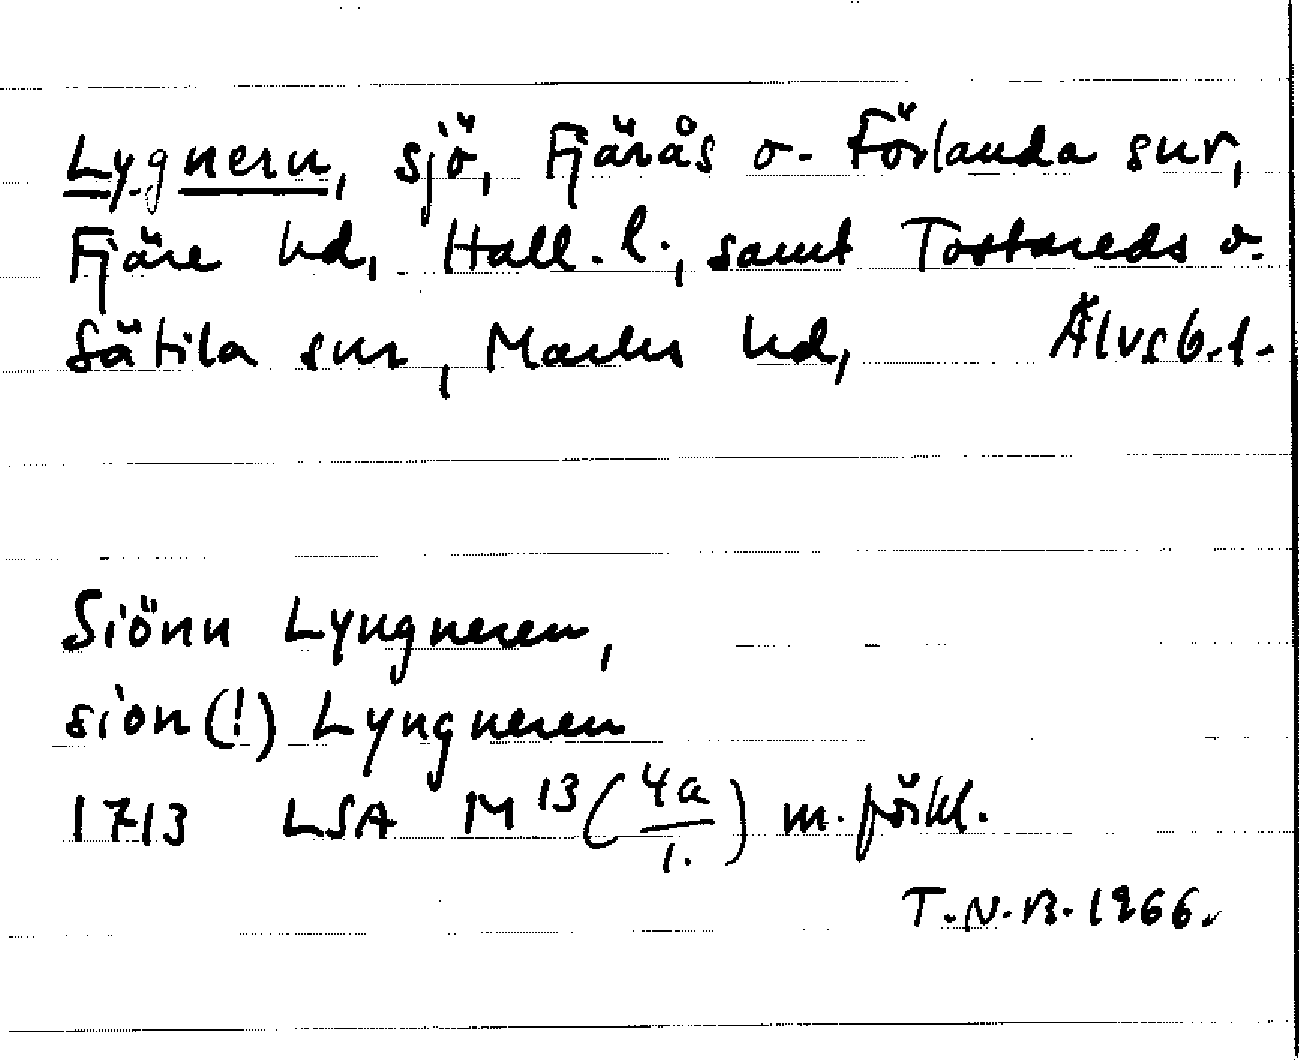 Lygnern, sjö, Fjärås o. Förlanda snr,
Fjäre hd, Hall. l., samt Tostareds o.
Sätila snr, Marks hd, Älvsb. l.
Siönn Lyngneren,
sion(!) Lyngneren
1713 LSA M 13 (4a/1.) m. förkl.
T.N.B. 1966.